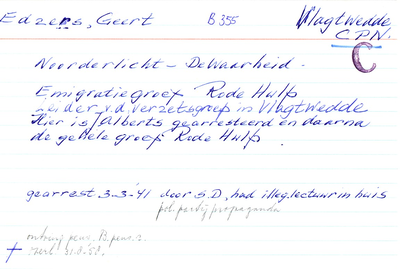 Edzens, Geert B 355 Vlagtwedde
C.P.N.
C
Noorderlicht - De Waarheid.
Emigratiegroep Rode Hulp
Leider v.d. verzetsgroep in Vlagtwedde
Hier is Alberts gearresteerd en daarna
de gehele groep Rode Hulp.
gearrest. 3-3-'41 door S.D., had illeg. lectuur in huis
pol. partij propaganda
ontvang pens. B. pens.
overl. 31-8-'58.